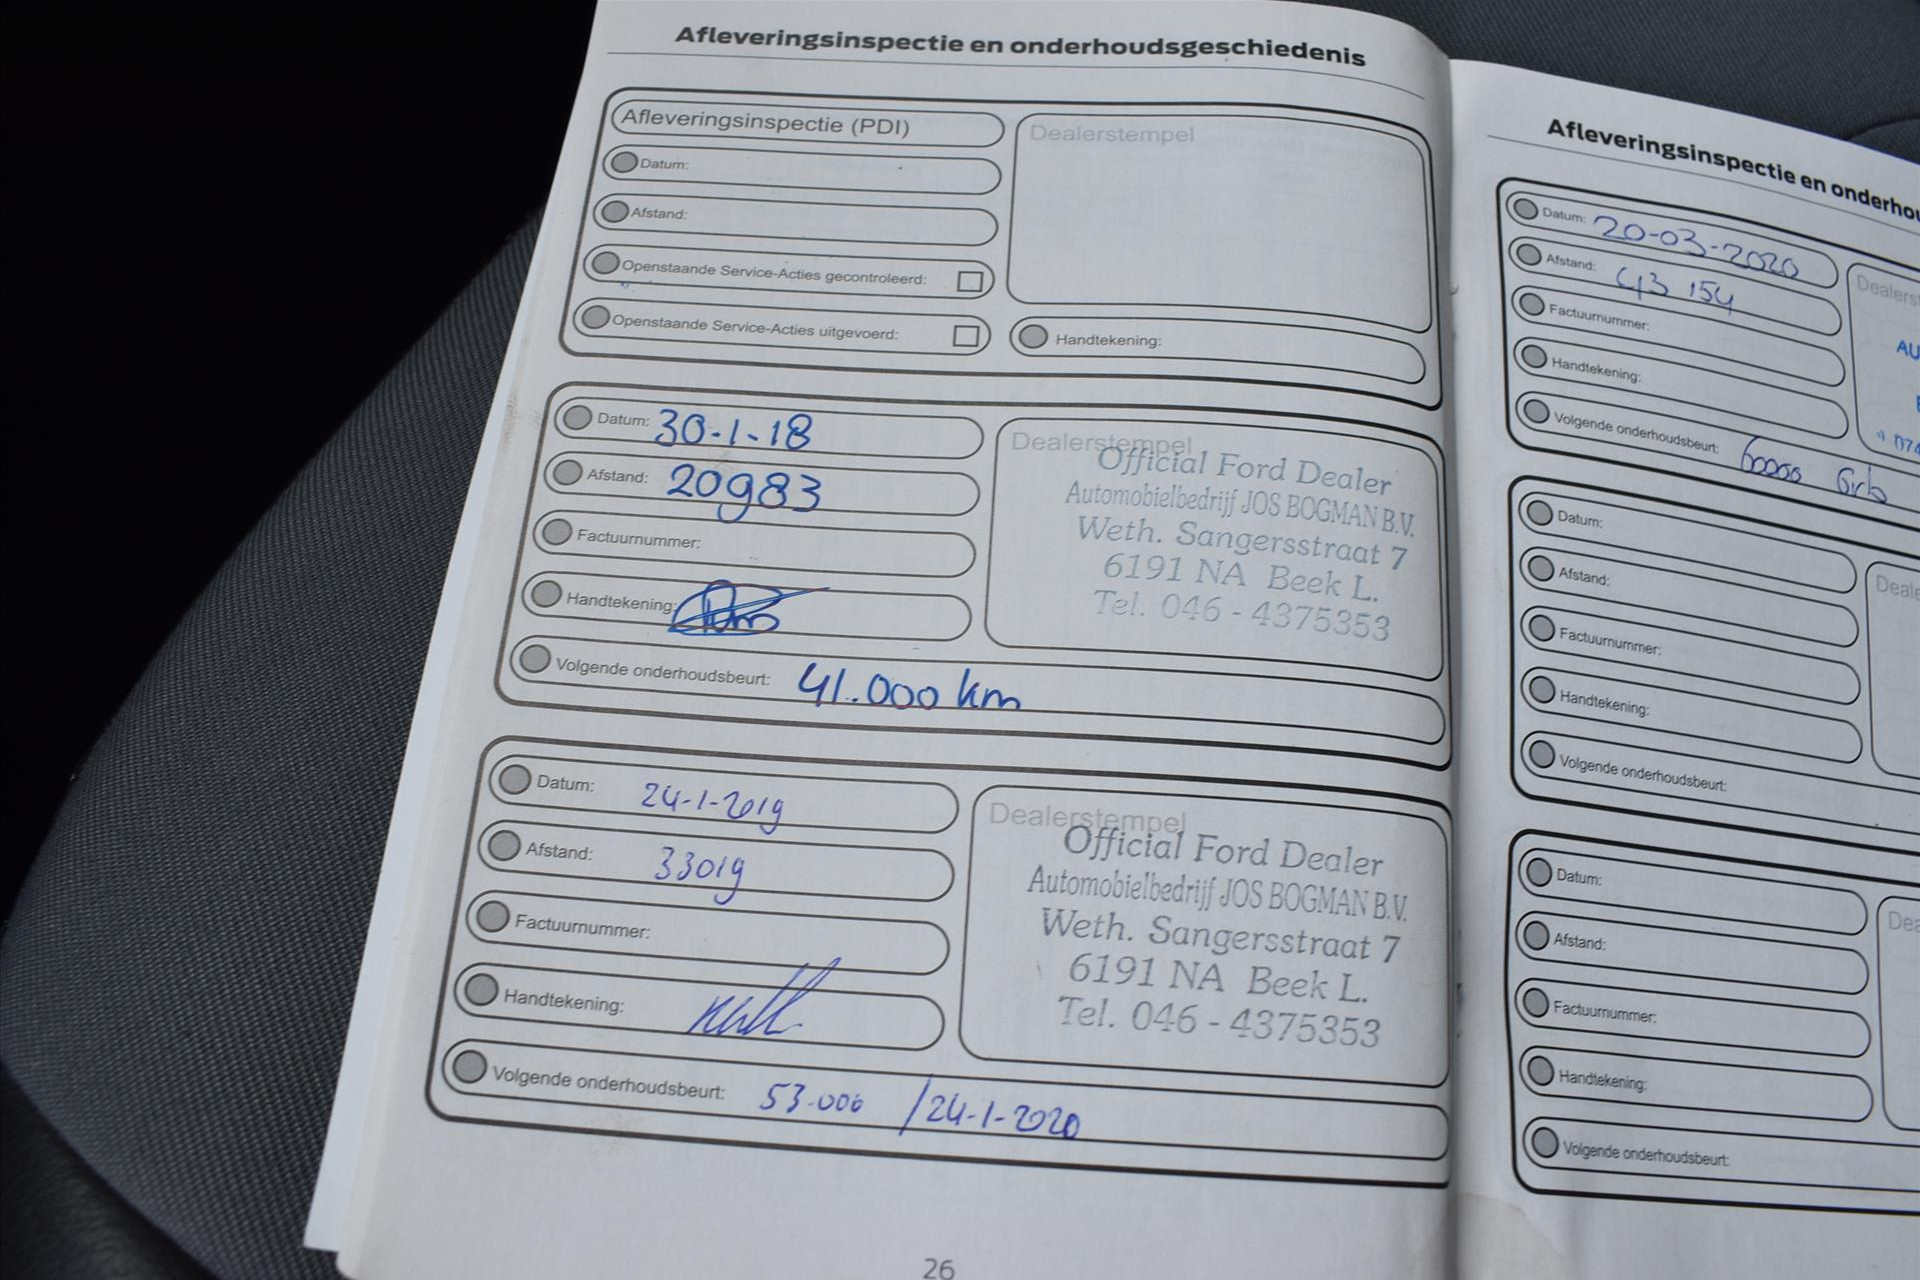 Afleveringsinspectie en onderhoudsgeschiedenis
Afleveringsinspectie (PDI)
Dealerstempel
Datum:
Afstand:
Openstaande Service-Acties gecontroleerd:
Openstaande Service-Acties uitgevoerd:
Handtekening:
Datum: 30-1-18
Afstand: 20983
Factuurnummer:
Handtekening:
Volgende onderhoudsbeurt: 41.000 km
Dealerstempel
Official Ford Dealer
Automobielbedrijf JOS BOGMAN B.V.
Weth. Sangersstraat 7
6191 NA Beek L.
Tel. 046 - 4375353
Datum: 24-1-2019
Afstand: 33019
Factuurnummer:
Handtekening:
Volgende onderhoudsbeurt: 53.000 / 24-1-2020
Dealerstempel
Official Ford Dealer
Automobielbedrijf JOS BOGMAN B.V.
Weth. Sangersstraat 7
6191 NA Beek L.
Tel. 046 - 4375353
26
Afleveringsinspectie en onderhou
Datum: 20-03-2020
Afstand: 43 154
Factuurnummer:
Handtekening:
Volgende onderhoudsbeurt:
Dealers
AU
074
Datum:
Afstand:
Factuurnummer:
Handtekening:
Volgende onderhoudsbeurt:
Deale
Datum:
Afstand:
Factuurnummer:
Handtekening:
Volgende onderhoudsbeurt:
Dea